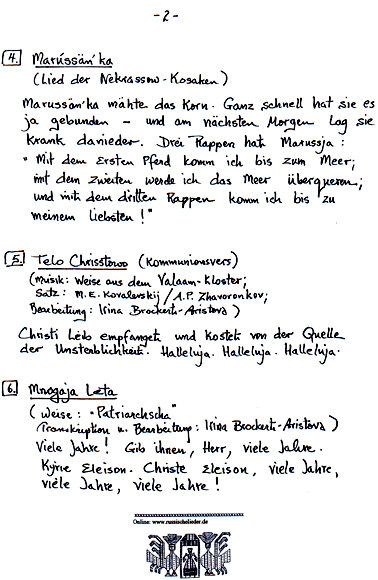 - 2 -
4. Marússän'ka
(Lied der Nekrassow-Kosaken)
Marussän'ka mähte das Korn. Ganz schnell hat sie es
ja gebunden - und am nächsten Morgen lag sie
krank danieder. Drei Rappen hat Marussja:
"Mit dem ersten Pferd komm ich bis zum Meer;
mit dem zweiten werde ich das Meer überqueren;
und mit dem dritten Rappen komm ich bis zu
meinem Liebsten!"
5. Telo Christowo (Kommunionsvers)
(Musik: Weise aus dem Valaam-Kloster;
Satz: M.E. Kovalevskij / A.P. Zhavoronkov;
Bearbeitung: Irina Brockert-Aristova)
Christi Leib empfanget und kostet von der Quelle
der Unsterblichkeit. Halleluja. Halleluja. Halleluja.
6. Mnogaja Leta
(Weise: "Patriarchscha"
Transkription u. Bearbeitung: Irina Brockert-Aristova)
Viele Jahre! Gib ihnen, Herr, viele Jahre.
Kyrie Eleison. Christe Eleison, viele Jahre,
viele Jahre, viele Jahre!
Online: www.russischelieder.de